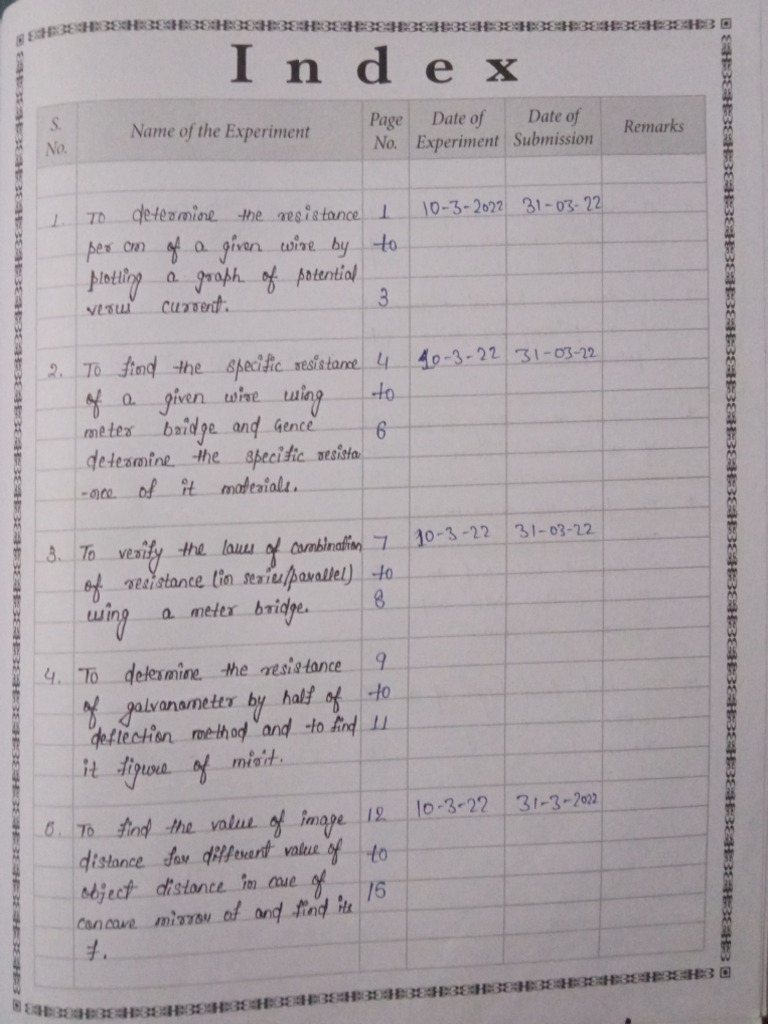 Index
S. No. Name of the Experiment Page No. Date of Experiment Date of Submission Remarks
1. To determine the resistance 1 10-3-2022 31-03-22
per cm of a given wire by to
plotting a graph of potential
verus current. 3
2. To find the specific resistance 4 10-3-22 31-03-22
of a given wire using to
meter bridge and Gence 6
determine the specific resista
-nce of it materials.
3. To verify the laws of combination 7 10-3-22 31-03-22
of resistance (in series/parallel) to
using a meter bridge. 8
4. To determine the resistance 9
of galvanometer by half of to
deflection method and to find 11
it figure of mirit.
5. To find the value of image 12 10-3-22 31-3-2022
distance for different value of to
object distance in case of 15
concave mirror of and find its
f.